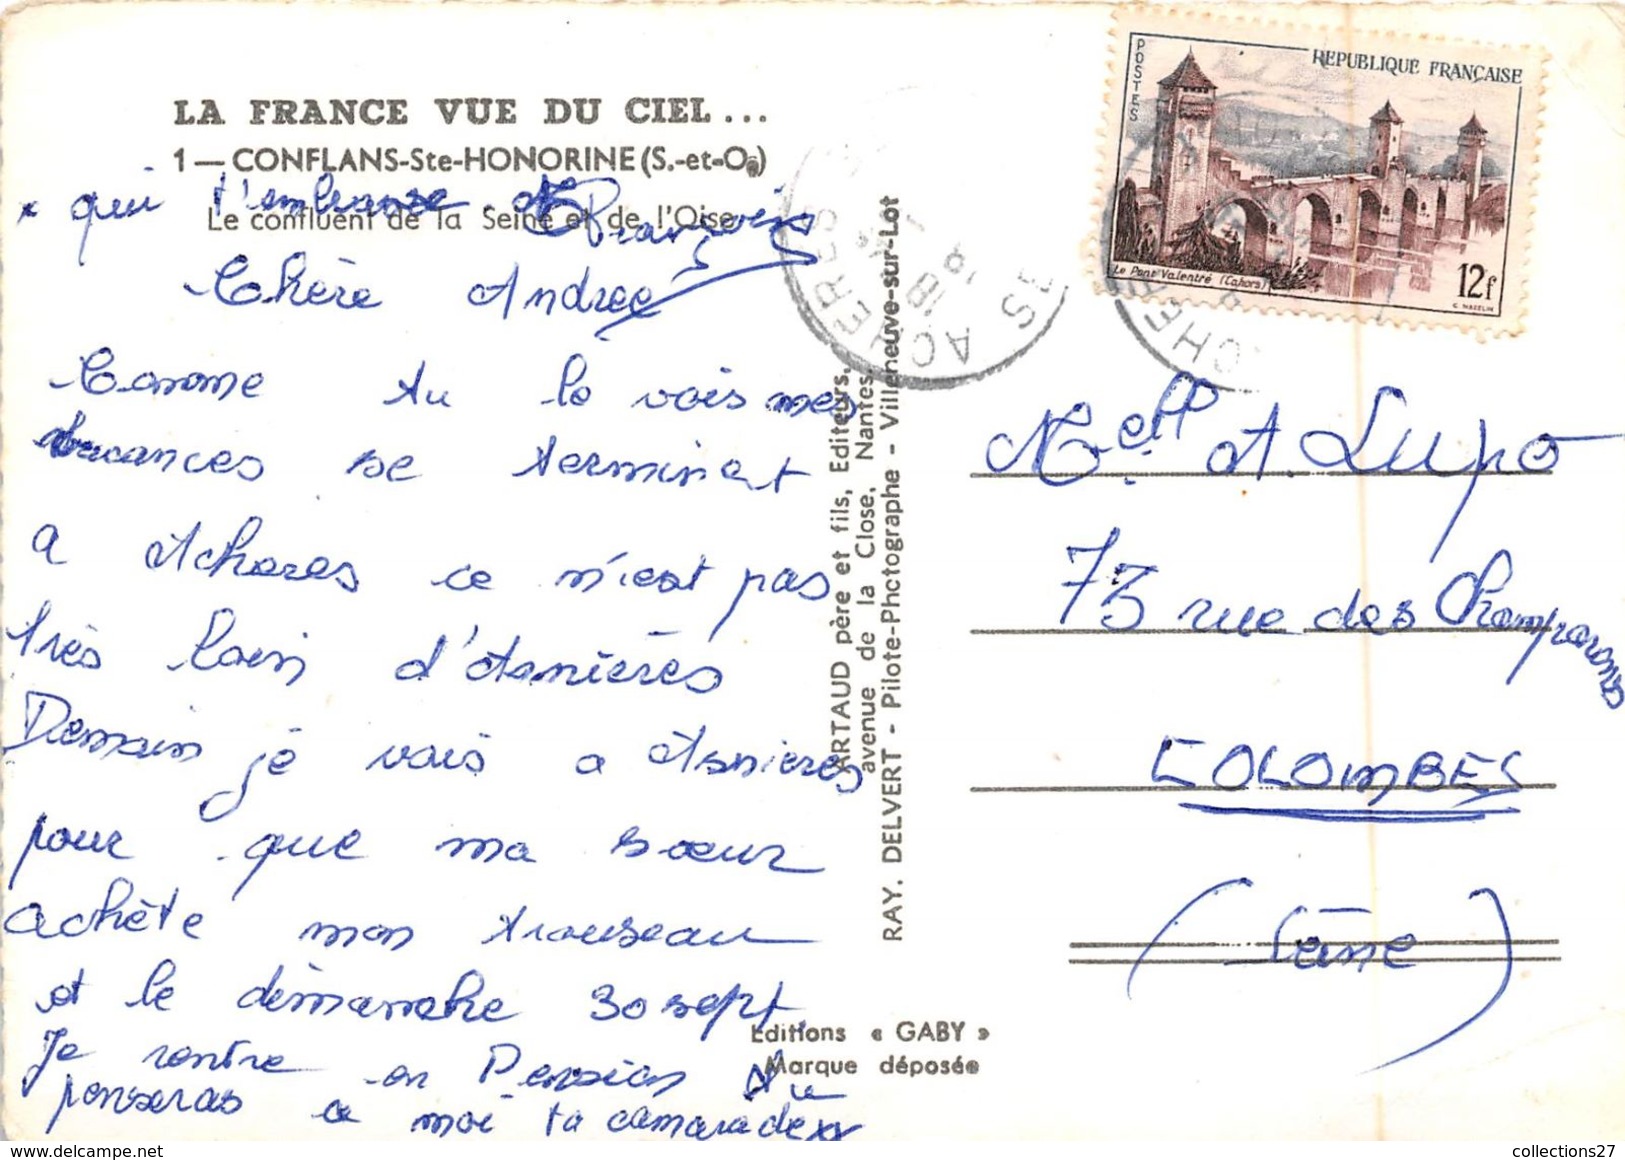 LA FRANCE VUE DU CIEL...
1 — CONFLANS-Ste-HONORINE (S.-et-O.)
Le confluent de la Seine et de l'Oise
x qui t'embrasse Françoise
Chère Andrée
Comme tu le vois mes
vacances se terminent
a Achères ce n'est pas
très loin d'Asnières
Demain je vais a Asnieres
pour que ma sœur
achète mon trousseau
et le dimanche 30 sept.
Je rentre en Pension tu
penseras a moi ta camarade x
ARTAUD père et fils, Editeurs.
avenue de la Close, Nantes.
RAY. DELVERT - Pilote-Photographe - Villeneuve-sur-Lot
Editions « GABY »
Marque déposée
ACHERES
18
POSTES
REPUBLIQUE FRANÇAISE
Le Pont Valentré (Cahors)
12f
C. MAZELIN
Melle A. Lupo
73 rue des Champarons
COLOMBES
(Seine)
collections27